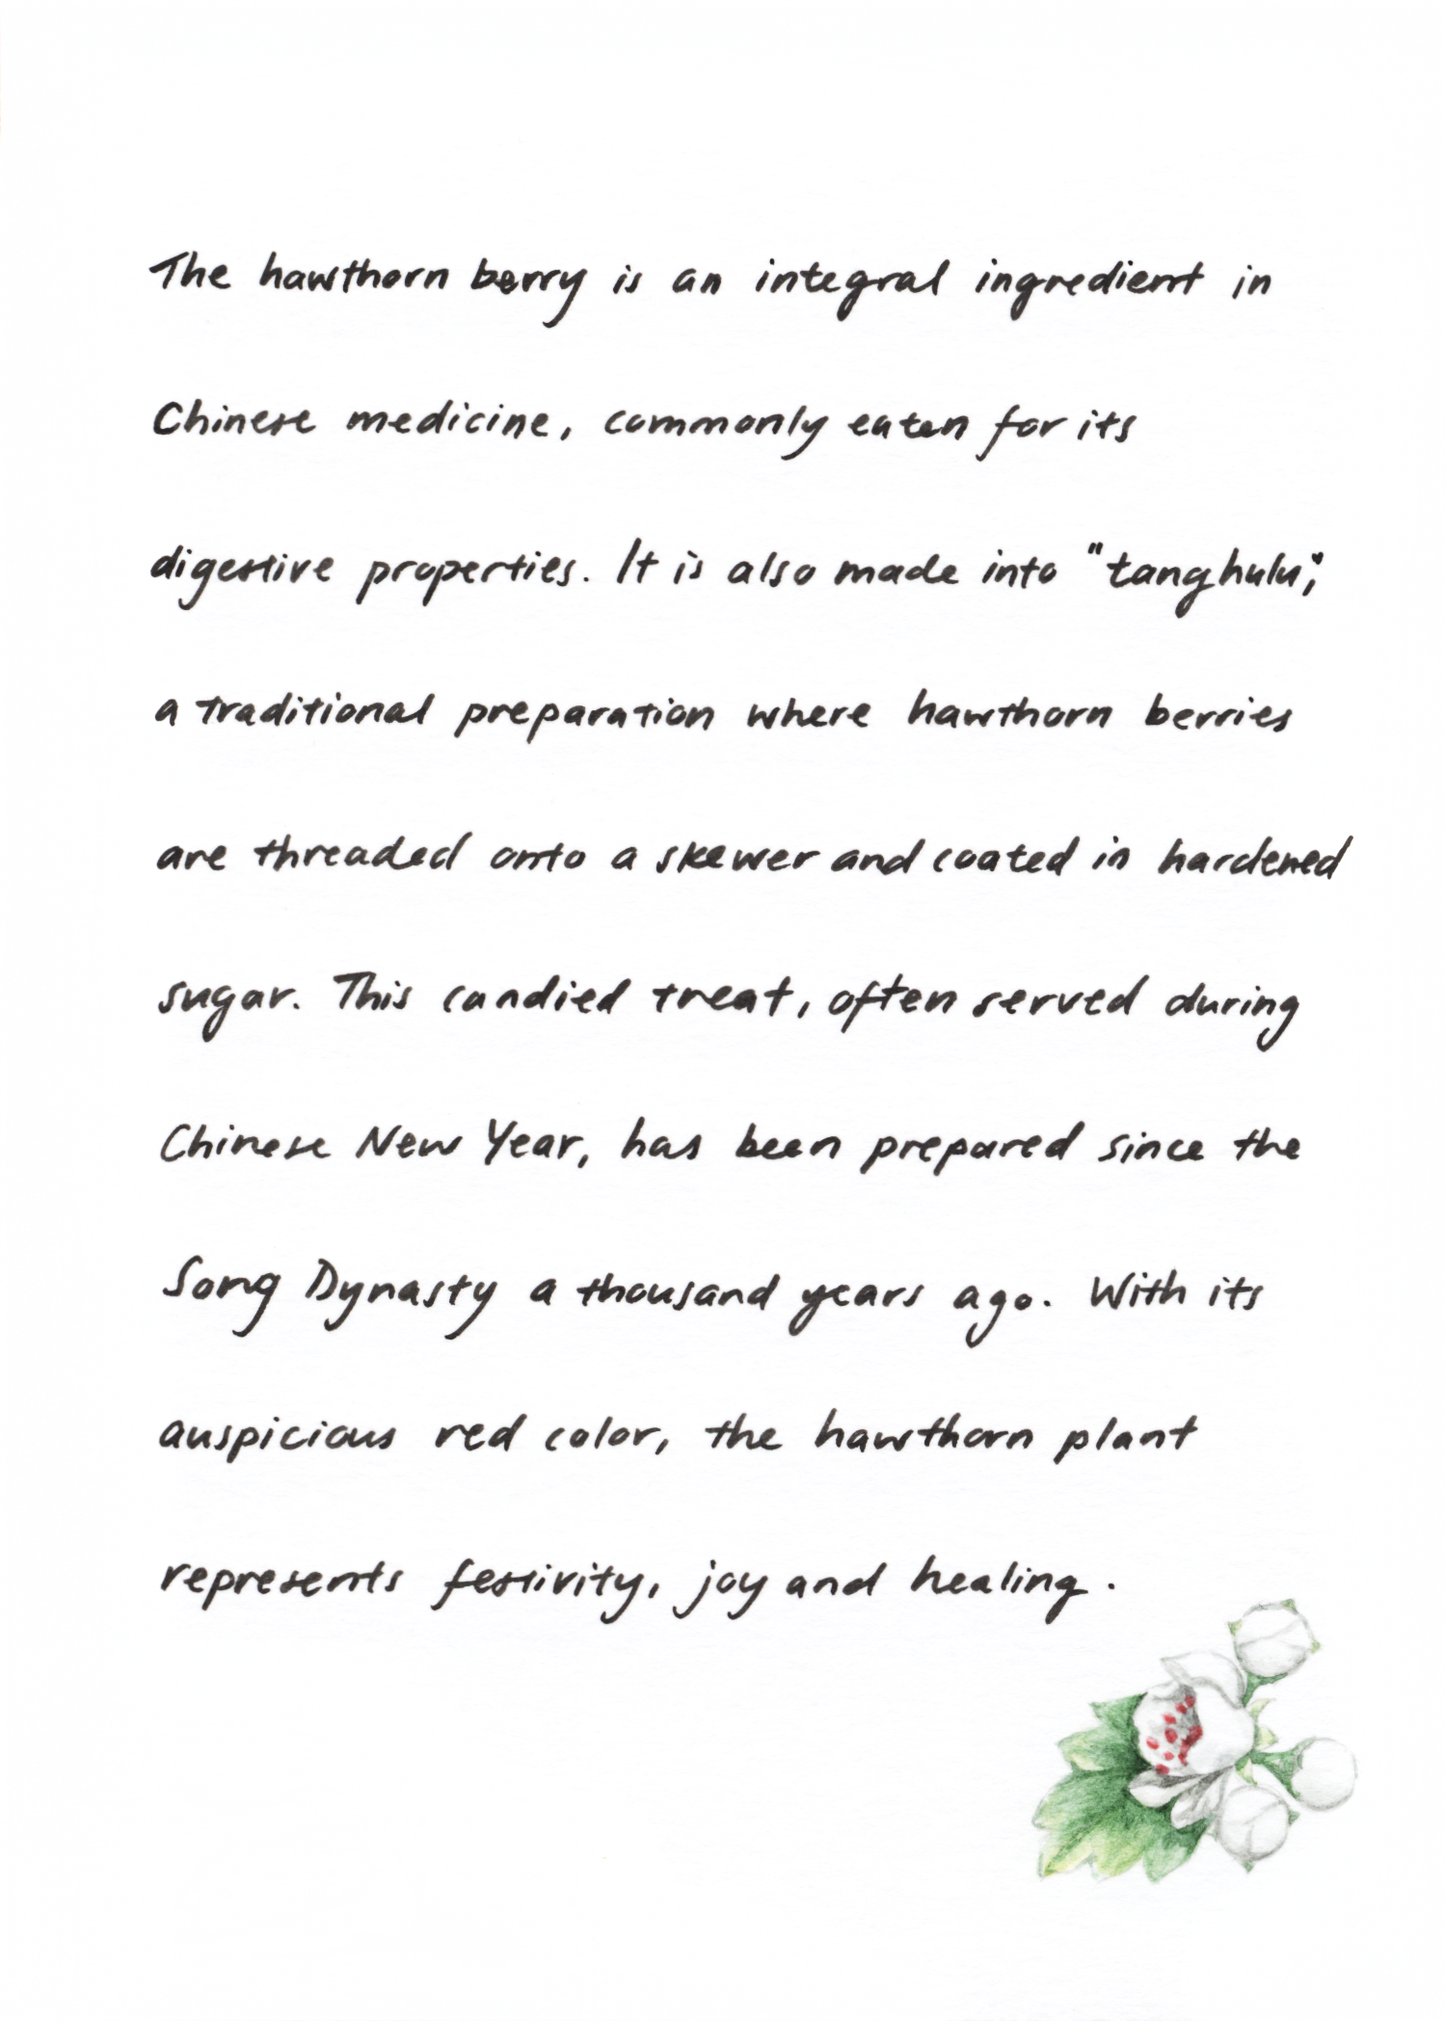 The hawthorn berry is an integral ingredient in
Chinese medicine, commonly eaten for its
digestive properties. It is also made into "tanghulu",
a traditional preparation where hawthorn berries
are threaded onto a skewer and coated in hardened
sugar. This candied treat, often served during
Chinese New Year, has been prepared since the
Song Dynasty a thousand years ago. With its
auspicious red color, the hawthorn plant
represents festivity, joy and healing.